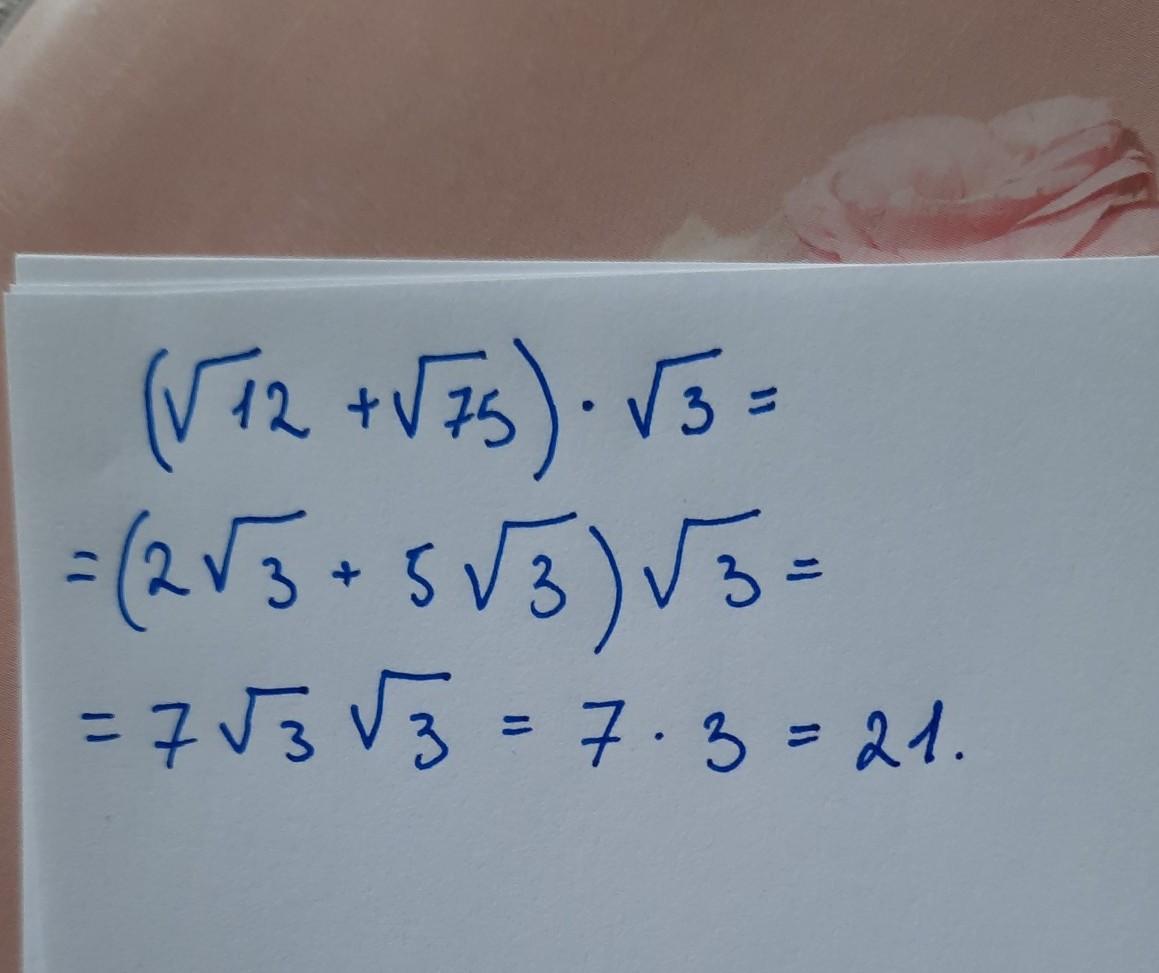 (√12 + √75) · √3 =
= (2√3 + 5√3)√3 =
= 7√3 √3 = 7 · 3 = 21.